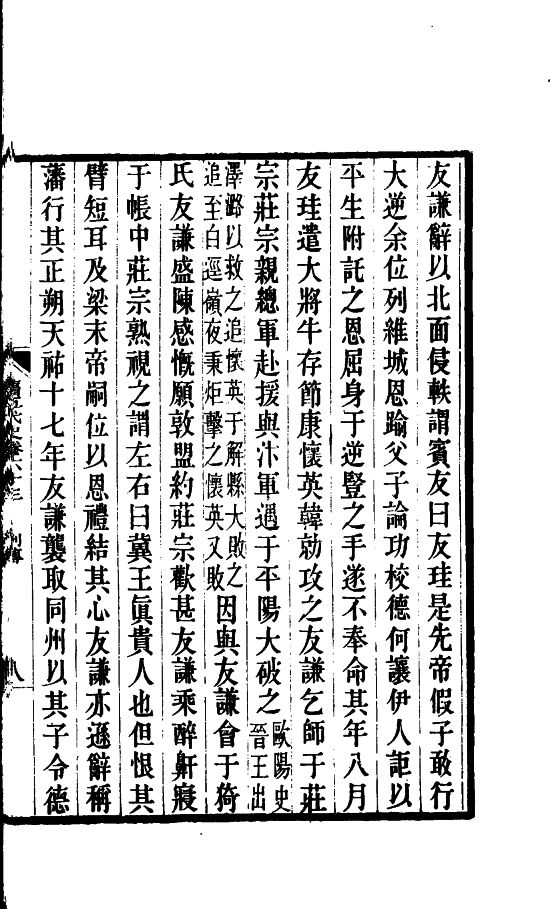 友謙辭以北面侵軼謂賓友曰友珪是先帝假子敢行
大逆余位列維城恩踰父子論功校德何讓伊人詎以
平生附託之恩屈身于逆豎之手遂不奉命其年八月
友珪遣大將牛存節康懷英韓勍攻之友謙乞師于莊
宗莊宗親總軍赴援與汴軍遇于平陽大破之歐陽史晉王出
澤潞以救之追懷英于解縣大敗之追至白逕嶺夜秉炬擊之懷英又敗因與友謙會于猗
氏友謙盛陳感慨願敦盟約莊宗歡甚友謙乘醉鼾寢
于帳中莊宗熟視之謂左右曰冀王眞貴人也但恨其
臂短耳及梁末帝嗣位以恩禮結其心友謙亦遜辭稱
藩行其正朔天祐十七年友謙襲取同州以其子令德
卷六十三
列傳
八